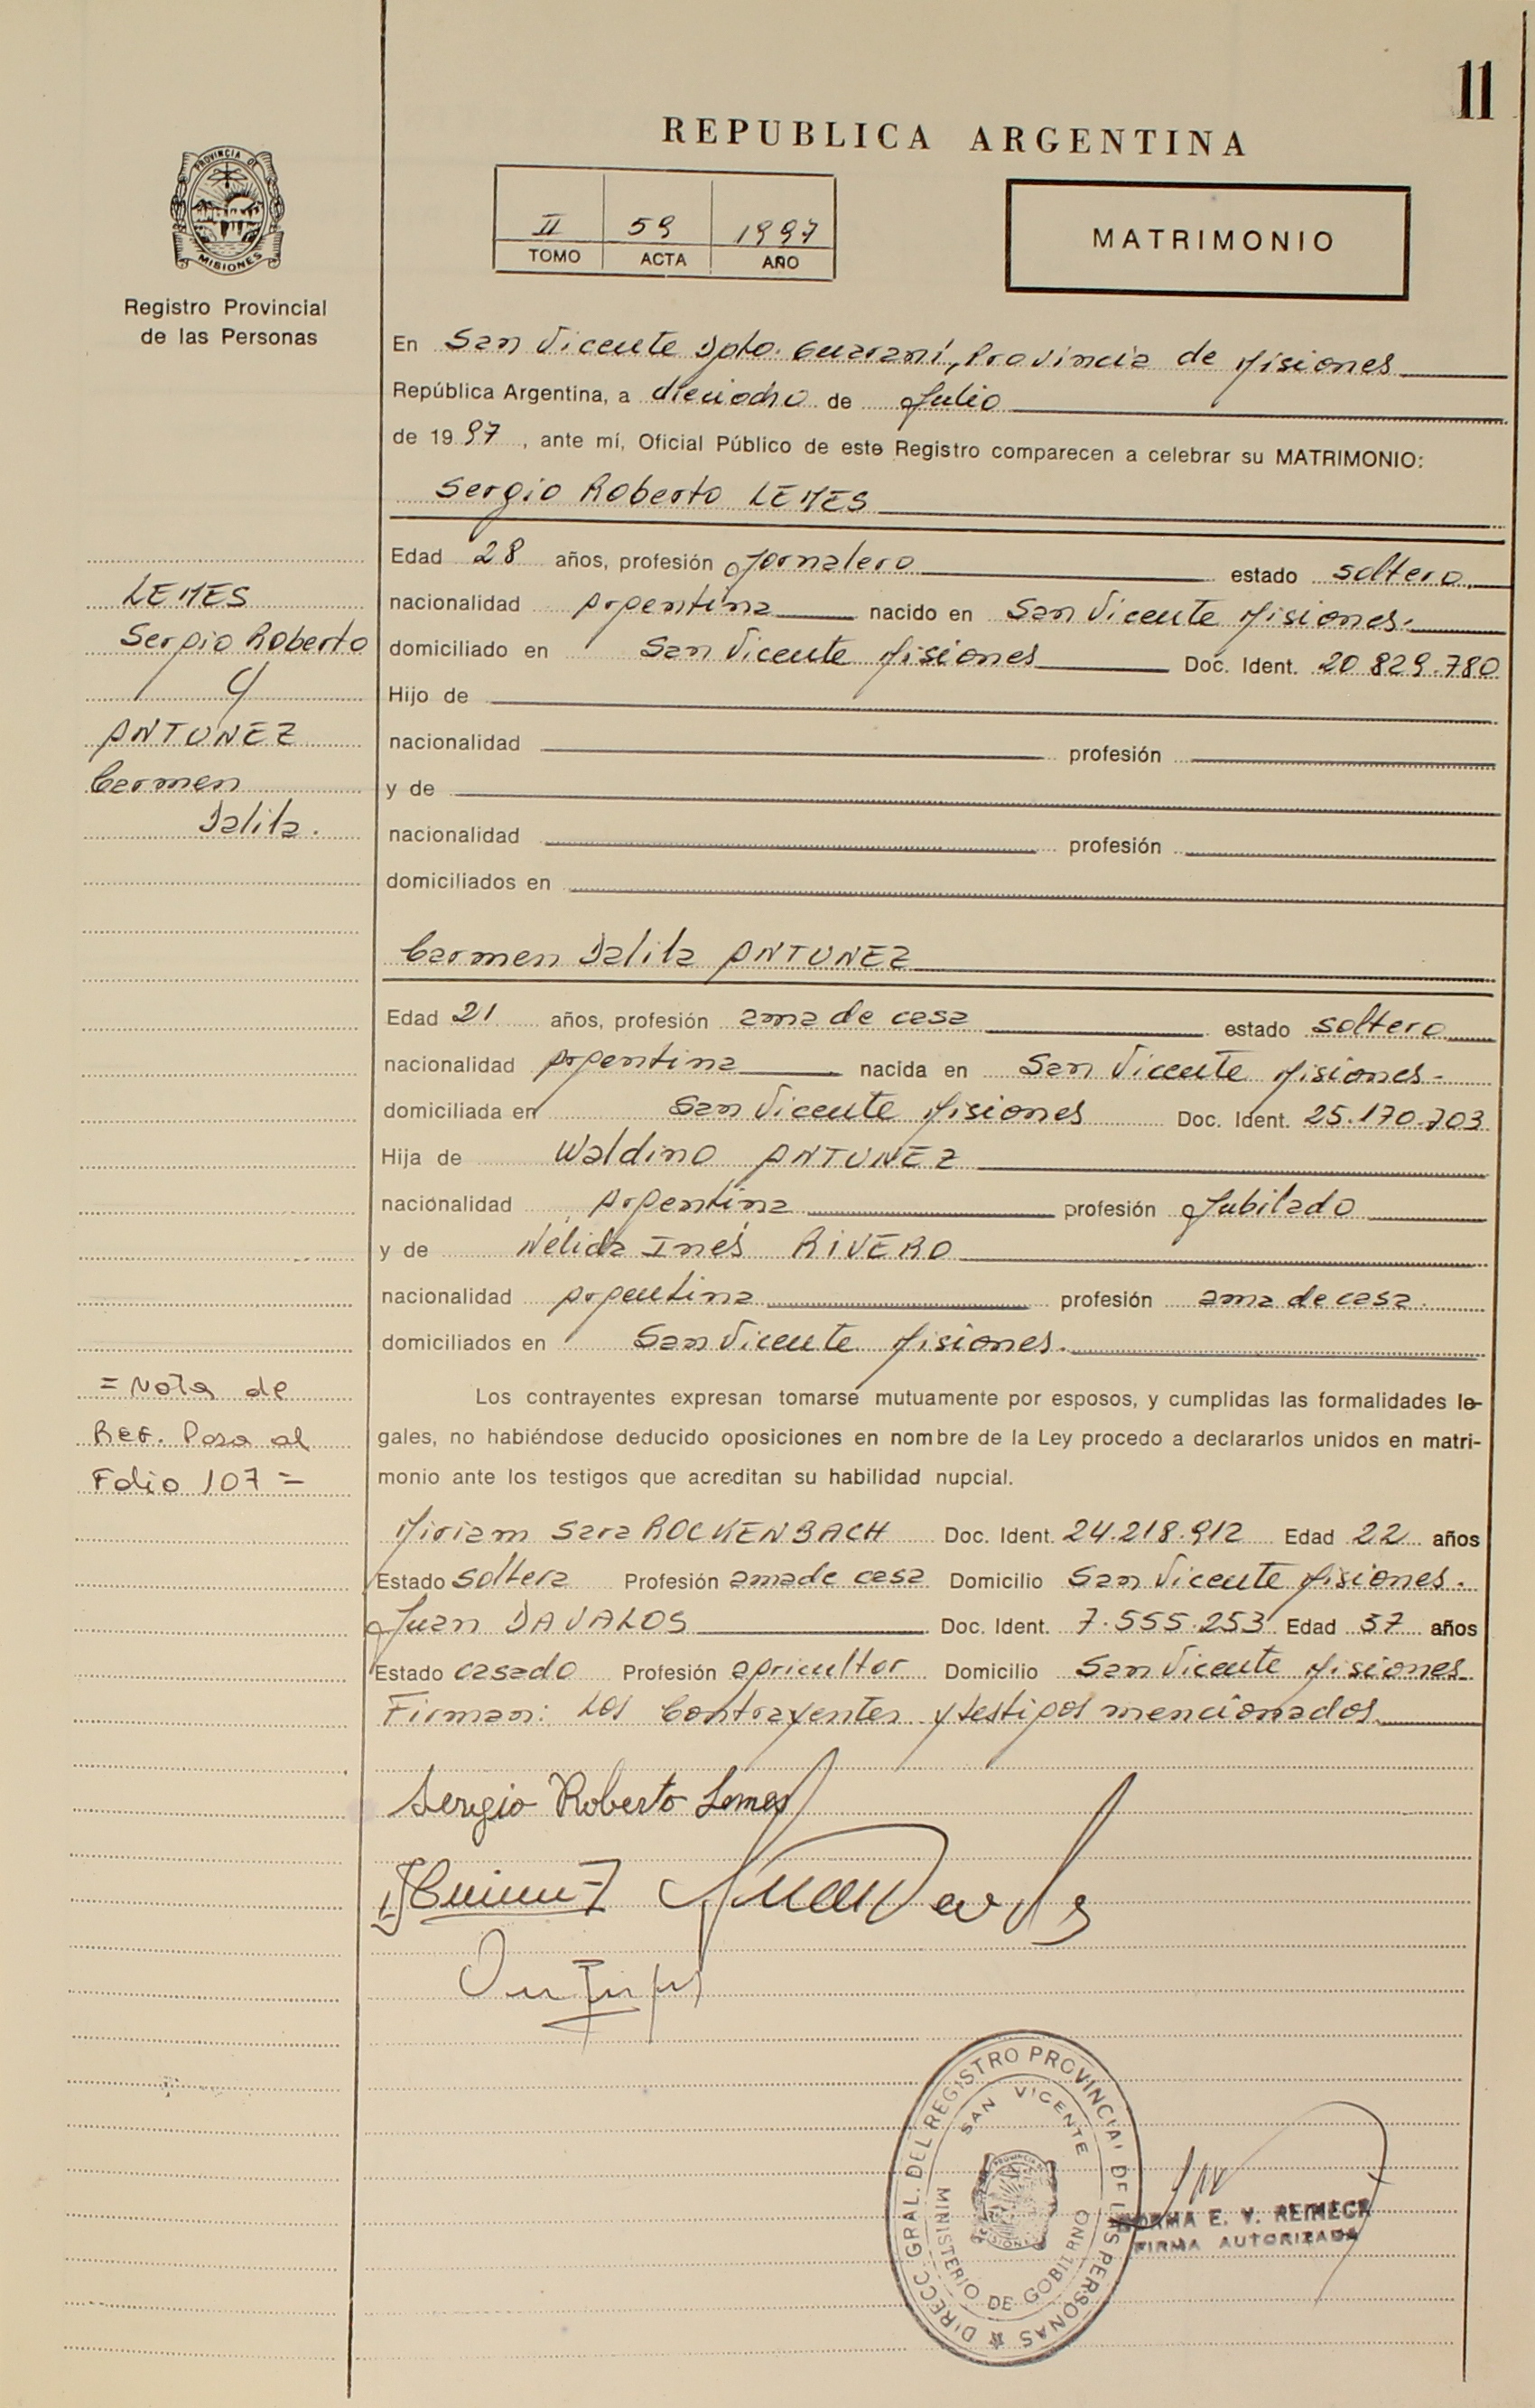 11
REPUBLICA ARGENTINA
PROVINCIA DE
MISIONES
Registro Provincial
de las Personas
II 59 1997
TOMO ACTA AÑO
MATRIMONIO
En San Vicente Dpto. Guaraní, Provincia de Misiones
República Argentina, a dieciocho de Julio
de 1997, ante mí, Oficial Público de este Registro comparecen a celebrar su MATRIMONIO:
Sergio Roberto LEMES
Edad 28 años, profesión Jornalero estado soltero
nacionalidad Argentina nacido en San Vicente Misiones.
domiciliado en San Vicente Misiones Doc. Ident. 20.829.780
Hijo de
nacionalidad profesión
y de
nacionalidad profesión
domiciliados en
LEMES
Sergio Roberto
y
ANTUNEZ
Carmen
Dalila.
Carmen Dalila ANTUNEZ
Edad 21 años, profesión ama de casa estado soltera
nacionalidad Argentina nacida en San Vicente Misiones-
domiciliada en San Vicente Misiones Doc. Ident. 25.170.703
Hija de Waldino ANTUNEZ
nacionalidad Argentina profesión Jubilado
y de Nélida Inés RIVERO
nacionalidad Argentina profesión ama de casa.
domiciliados en San Vicente Misiones.
=Nota de
Ref. Pasa al
Folio 107=
Los contrayentes expresan tomarse mutuamente por esposos, y cumplidas las formalidades le-
gales, no habiéndose deducido oposiciones en nombre de la Ley procedo a declararlos unidos en matri-
monio ante los testigos que acreditan su habilidad nupcial.
Miriam Sara ROCKENBACH Doc. Ident. 24.218.912 Edad 22 años
Estado soltera Profesión ama de casa Domicilio San Vicente Misiones.
Juan DAVALOS Doc. Ident. 7.555.253 Edad 57 años
Estado casado Profesión agricultor Domicilio San Vicente Misiones
Firman: Los Contrayentes y testigos mencionados
Sergio Roberto Lemes
DIRECC. GRAL. DEL REGISTRO PROVINCIAL DE LAS PERSONAS
SAN VICENTE
MINISTERIO DE GOBIERNO
NORMA E. V. REINECK
FIRMA AUTORIZADA